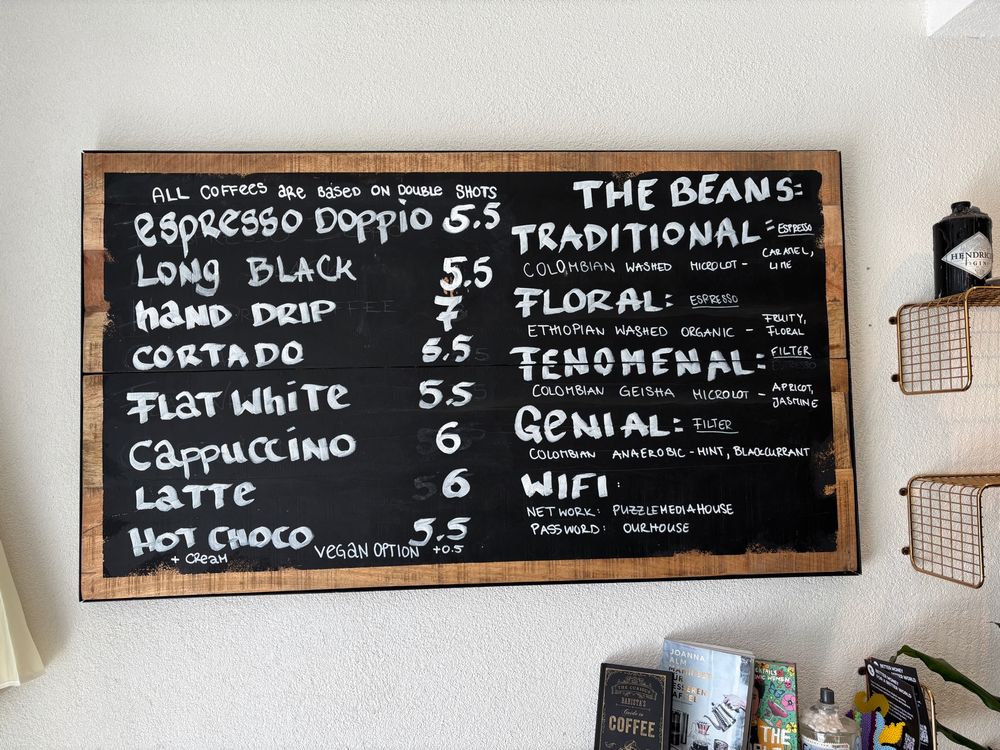 ALL COFFEES ARE BASED ON DOUBLE SHOTS
ESPRESSO DOPPIO 5.5
LONG BLACK 5.5
HAND DRIP 7
CORTADO 5.5
FLAT WHITE 5.5
CAPPUCCINO 6
LATTE 6
HOT CHOCO 5.5
+ CREAM
VEGAN OPTION +0.5
THE BEANS:
TRADITIONAL: ESPRESSO
COLOMBIAN WASHED MICROLOT - CARAMEL, LIME
FLORAL: ESPRESSO
ETHIOPIAN WASHED ORGANIC - FRUITY, FLORAL
FENOMENAL: FILTER
COLOMBIAN GEISHA MICROLOT - APRICOT, JASMINE
GENIAL: FILTER
COLOMBIAN ANAEROBIC - MINT, BLACKCURRANT
WIFI:
NETWORK: PUZZLEMEDIAHOUSE
PASSWORD: OURHOUSE
HENDRICK'S
GIN
THE CURIOUS
BARISTA'S
Guide to
COFFEE
JOANNA
ALM
THE